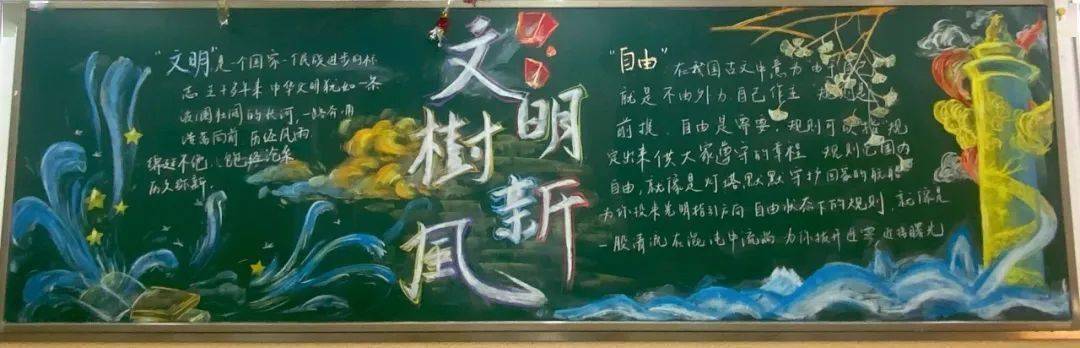 "文明"是一个国家一个民族进步的标
志 五千多年来 中华文明犹如一条
波澜壮阔的长河，一路奔涌
浩荡向前 历经风雨
绵延不绝，饱经沧桑
历久弥新.
文明
樹新
風
"自由" 在我国古文中意为由于自己
就是不由外力自己作主 规则是
前提，自由是需要，规则可以
定出来供大家遵守的章程 规则
自由，就像是灯塔默默守护
为你投来光明指引方向 自由状态下的规则，就像是
一股清流在混沌中流淌 为你拨开迷雾 迎接曙光